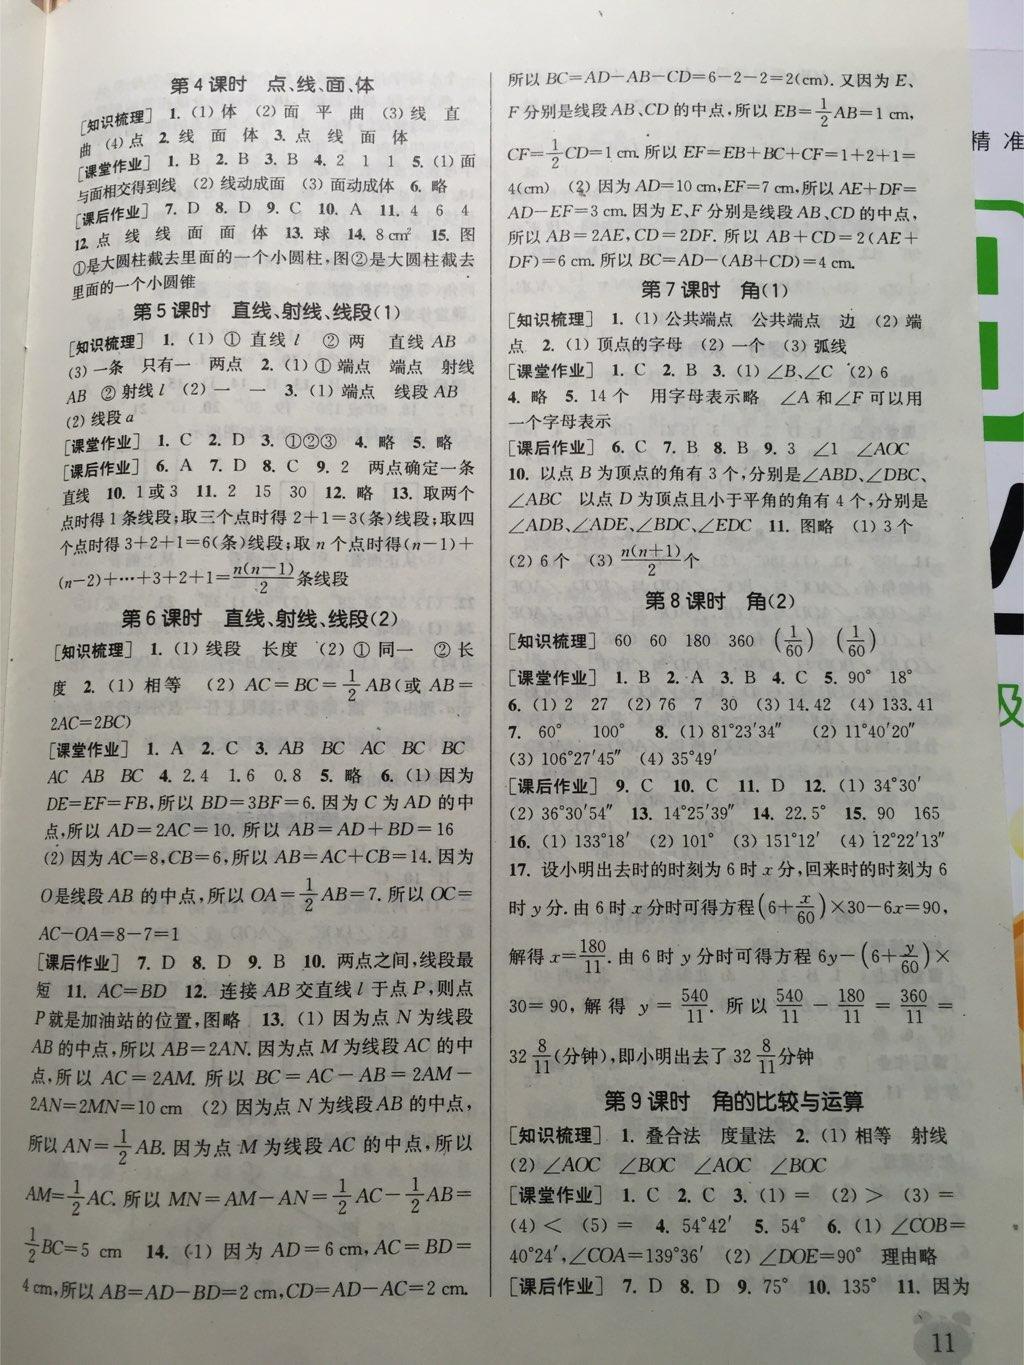 第4课时 点、线、面、体
[知识梳理] 1. (1) 体 (2) 面 平 曲 (3) 线 直
曲 (4) 点 2. 线 面 体 3. 点 线 面 体
[课堂作业] 1. B 2. B 3. B 4. 2 1 1 5. (1) 面
与面相交得到线 (2) 线动成面 (3) 面动成体 6. 略
[课后作业] 7. D 8. D 9. C 10. A 11. 4 6 4
12. 点 线 线 面 面 体 13. 球 14. 8 cm² 15. 图
①是大圆柱截去里面的一个小圆柱,图②是大圆柱截去
里面的一个小圆锥
第5课时 直线、射线、线段(1)
[知识梳理] 1. (1) ① 直线 l ② 两 直线 AB
(3) 一条 只有一 两点 2. (1) ① 端点 端点 射线
AB ② 射线 l (2) 一 一 3. (1) 端点 线段 AB
(2) 线段 a
[课堂作业] 1. C 2. D 3. ①②③ 4. 略 5. 略
[课后作业] 6. A 7. D 8. C 9. 2 两点确定一条
直线 10. 1或3 11. 2 15 30 12. 略 13. 取两个
点时得1条线段;取三个点时得2+1=3(条)线段;取四
个点时得3+2+1=6(条)线段;取 n 个点时得(n-1)+
(n-2)+…+3+2+1=n(n-1)/2条线段
第6课时 直线、射线、线段(2)
[知识梳理] 1. (1) 线段 长度 (2) ① 同一 ② 长
度 2. (1) 相等 (2) AC=BC=1/2 AB(或 AB=
2AC=2BC)
[课堂作业] 1. A 2. C 3. AB BC AC BC BC
AC AB BC 4. 2.4 1.6 0.8 5. 略 6. (1) 因为
DE=EF=FB,所以 BD=3BF=6. 因为 C 为 AD 的中
点,所以 AD=2AC=10. 所以 AB=AD+BD=16
(2) 因为 AC=8,CB=6,所以 AB=AC+CB=14. 因为
O是线段 AB 的中点,所以 OA=1/2 AB=7. 所以 OC=
AC-OA=8-7=1
[课后作业] 7. D 8. D 9. B 10. 两点之间,线段最
短 11. AC=BD 12. 连接 AB 交直线 l 于点 P,则点
P就是加油站的位置,图略 13. (1) 因为点 N 为线段
AB 的中点,所以 AB=2AN. 因为点 M 为线段 AC 的中
点,所以 AC=2AM. 所以 BC=AC-AB=2AM-
2AN=2MN=10 cm (2) 因为点 N 为线段 AB 的中点,
所以 AN=1/2 AB. 因为点 M 为线段 AC 的中点,所以
AM=1/2 AC. 所以 MN=AM-AN=1/2 AC-1/2 AB=
1/2 BC=5 cm 14. (1) 因为 AD=6 cm,AC=BD=
4 cm,所以 AB=AD-BD=2 cm,CD=AD-AC=2 cm.
所以 BC=AD-AB-CD=6-2-2=2(cm). 又因为 E、
F 分别是线段 AB、CD 的中点,所以 EB=1/2 AB=1 cm,
CF=1/2 CD=1 cm. 所以 EF=EB+BC+CF=1+2+1=
4(cm) (2) 因为 AD=10 cm,EF=7 cm,所以 AE+DF=
AD-EF=3 cm. 因为 E、F 分别是线段 AB、CD 的中点,
所以 AB=2AE,CD=2DF. 所以 AB+CD=2(AE+
DF)=6 cm. 所以 BC=AD-(AB+CD)=4 cm.
第7课时 角(1)
[知识梳理] 1. (1) 公共端点 公共端点 边 (2) 端
点 2. (1) 顶点的字母 (2) 一个 (3) 弧线
[课堂作业] 1. C 2. B 3. (1) ∠B、∠C (2) 6
4. 略 5. 14个 用字母表示略 ∠A 和∠F 可以用
一个字母表示
[课后作业] 6. C 7. B 8. B 9. 3 ∠1 ∠AOC
10. 以点 B 为顶点的角有3个,分别是∠ABD、∠DBC、
∠ABC 以点 D 为顶点且小于平角的角有4个,分别是
∠ADB、∠ADE、∠BDC、∠EDC 11. 图略 (1) 3个
(2) 6个 (3) n(n+1)/2个
第8课时 角(2)
[知识梳理] 60 60 180 360 (1/60) (1/60)
[课堂作业] 1. B 2. A 3. B 4. C 5. 90° 18°
6. (1) 2 27 (2) 76 7 30 (3) 14.42 (4) 133.41
7. 60° 100° 8. (1) 81°23′34″ (2) 11°40′20″
(3) 106°27′45″ (4) 35°49′
[课后作业] 9. C 10. C 11. D 12. (1) 34°30′
(2) 36°30′54″ 13. 14°25′39″ 14. 22.5° 15. 90 165
16. (1) 133°18′ (2) 101° (3) 151°12′ (4) 12°22′13″
17. 设小明出去时的时刻为6时 x 分,回来时的时刻为6
时 y 分. 由6时 x 分时可得方程(6+x/60)×30-6x=90,
解得 x=180/11. 由6时 y 分时可得方程 6y-(6+y/60)×
30=90,解得 y=540/11. 所以 540/11-180/11=360/11=
32 8/11(分钟),即小明出去了 32 8/11 分钟
第9课时 角的比较与运算
[知识梳理] 1. 叠合法 度量法 2. (1) 相等 射线
(2) ∠AOC ∠BOC ∠AOC ∠BOC
[课堂作业] 1. C 2. C 3. (1) = (2) > (3) =
(4) < (5) = 4. 54°42′ 5. 54° 6. (1) ∠COB=
40°24′,∠COA=139°36′ (2) ∠DOE=90° 理由略
[课后作业] 7. D 8. D 9. 75° 10. 135° 11. 因为
11
精 准
级